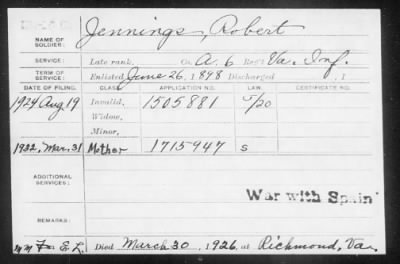 NAME OF SOLDIER: Jennings, Robert
SERVICE: Late rank, Co. A. 6 Reg't Va. Inf.
TERM OF SERVICE: Enlisted June 26, 1898 Discharged , 1
DATE OF FILING. CLASS. APPLICATION NO. LAW. CERTIFICATE NO.
1924 Aug. 19 Invalid, 1505881
Widow,
Minor,
1932, Mar. 31 Mother 1715947 S
ADDITIONAL SERVICES:
War with Spain
REMARKS:
E. L. Died March 30, 1926, at Richmond, Va.